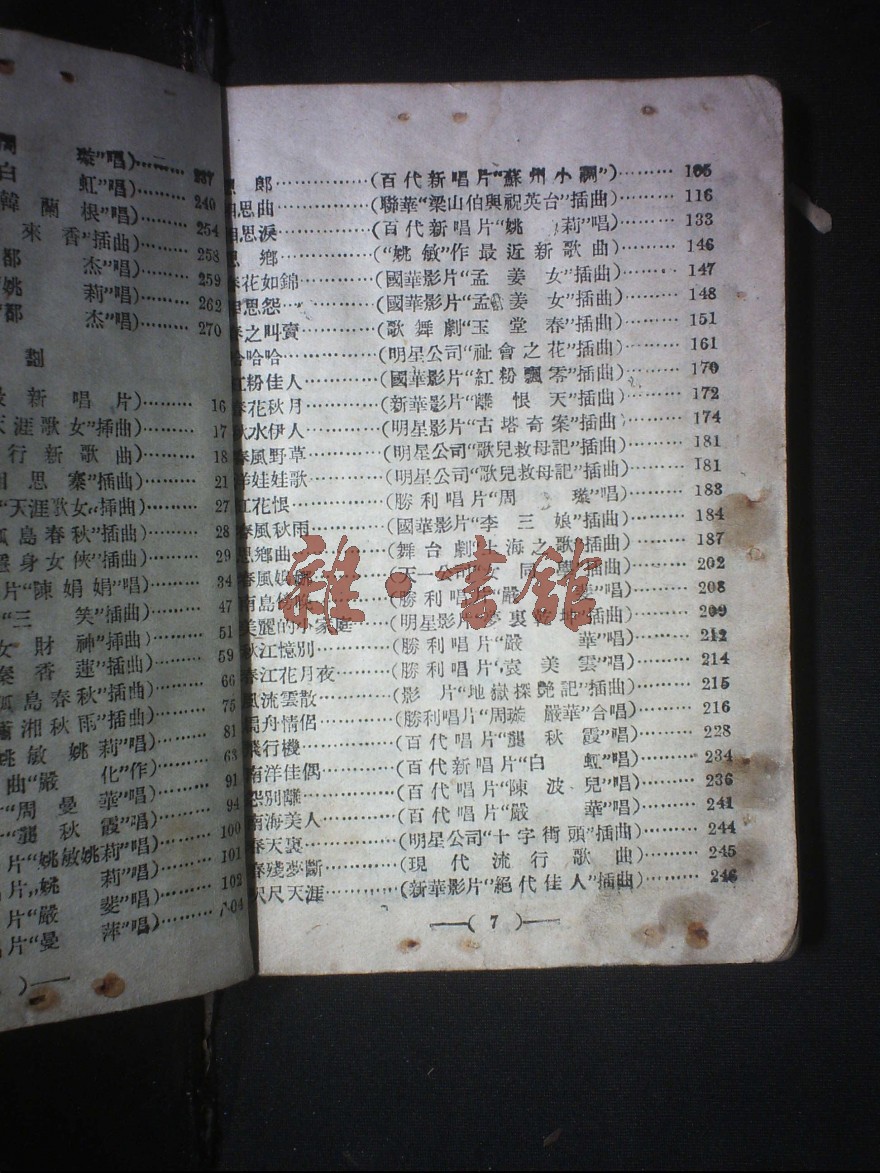 璇”唱)……237
白 虹”唱)……240
韓 蘭 根”唱)……254
來 香”插曲)……258
都 杰”唱)……259
姚 莉”唱)……262
“都 杰”唱)……270
劃
新 唱 片)……16
天涯歌女”插曲)……17
行 新 歌 曲)……18
相 思 寨”插曲)……21
“天涯歌女”插曲)……27
孤 島 春 秋”插曲)……28
隱 身 女 俠”插曲)……29
片“陳 娟 娟”唱)……34
“三 笑”插曲)……47
女 財 神”插曲)……51
秦 香 蓮”插曲)……59
孤 島 春 秋”插曲)……66
瀟 湘 秋 雨”插曲)……75
姚 敏 姚 莉”唱)……81
曲“嚴 化”作)……63
“周 曼 華”唱)……91
“龔 秋 霞”唱)……94
片“姚敏姚莉”唱)……100
片“姚 莉”唱)……101
片“嚴 斐”唱)……102
片“曼 萍”唱)……104
郎……(百代新唱片“蘇州小調”)……105
相思曲……(聯華“梁山伯與祝英台”插曲)……116
相思淚……(百代新唱片“姚 莉”唱)……133
思 鄉……(“姚敏”作最近新歌曲)……146
春花如錦……(國華影片“孟 姜 女”插曲)……147
相思怨……(國華影片“孟 姜 女”插曲)……148
春之叫賣……(歌舞劇“玉 堂 春”插曲)……151
哈哈哈……(明星公司“社會之花”插曲)……161
紅粉佳人……(國華影片“紅粉飄零”插曲)……170
春花秋月……(新華影片“離 恨 天”插曲)……172
秋水伊人……(明星影片“古塔奇案”插曲)……174
春風野草……(明星公司“歌兒救母記”插曲)……181
洋娃娃歌……(明星公司“歌兒救母記”插曲)……181
紅花恨……(勝利唱片“周 璇”唱)……183
春風秋雨……(國華影片“李 三 娘”插曲)……184
思鄉曲……(舞台劇“上海之歌”插曲)……187
春風……(天一公司“女 同 學”插曲)……202
南島……(勝利唱片“嚴 」唱)……208
美麗的小家庭……(明星影片“夢裏乾坤”插曲)……209
秋江憶別……(勝利唱片“嚴 華”唱)……212
春江花月夜……(勝利唱片“袁美雲”唱)……214
風流雲散……(影 片“地獄探艷記”插曲)……215
扁舟情侶……(勝利唱片“周璇 嚴華”合唱)……216
飛行機……(百代唱片“龔秋霞”唱)……228
南洋佳偶……(百代新唱片“白 虹”唱)……234
怨別離……(百代唱片“陳波兒”唱)……236
南海美人……(百代唱片“嚴 華”唱)……241
春天裏……(明星公司“十字街頭”插曲)……244
春殘夢斷……(現代流行歌曲)……245
咫尺天涯……(新華影片“絕代佳人”插曲)……246
——( 7 )——
雜·書館